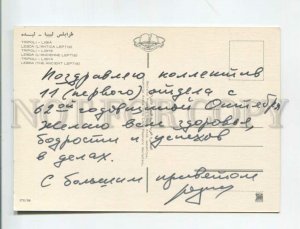 طرابلس ليبيا - لبدة
TRIPOLI - LIBIA
LEBDA (L'ANTICA LEPTIS)
TRIPOLI - LIBYE
LEBDA (L'ANCIENNE LEPTIS)
TRIPOLI - LIBYA
LEBDA (THE ANCIENT LEPTIS)
Поздравляю коллектив
11 (первого) отдела с
62ой годовщиной Октября
желаю всем здоровья,
бодрости и успехов
в делах.
С большим приветом